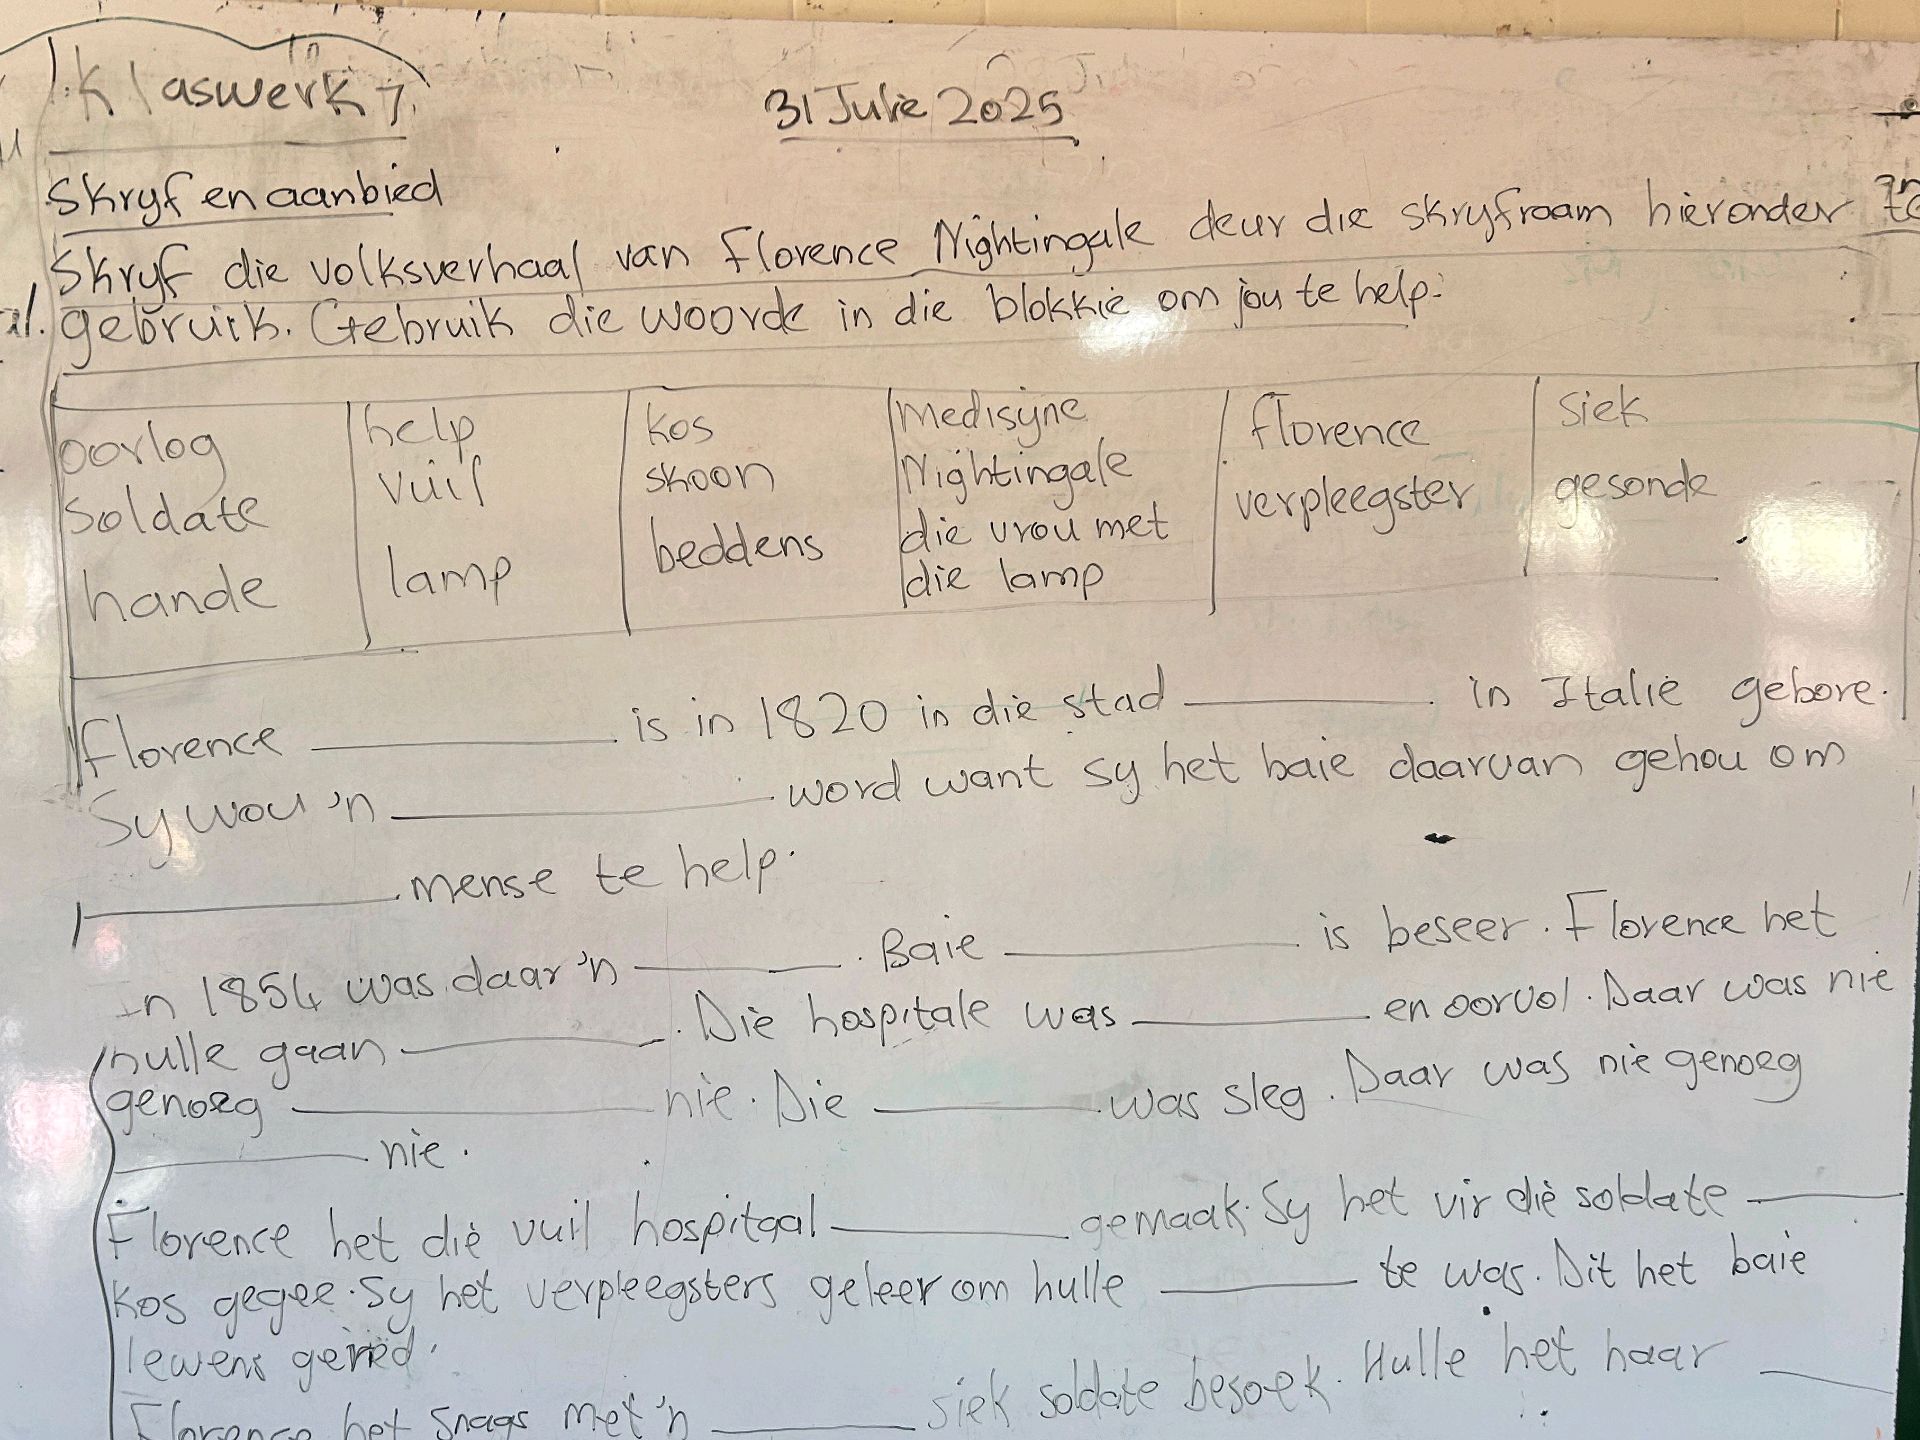 Klaswerk 7
31 Julie 2025
Skryf en aanbied
Skryf die volksverhaal van Florence Nightingale deur die skryfraam hieronder te
gebruik. Gebruik die woorde in die blokkie om jou te help.
oorlog help kos Medisyne Florence siek
soldate vuil skoon Nightingale verpleegster gesonde
hande lamp beddens die vrou met
die lamp
Florence ________ is in 1820 in die stad ________ in Italië gebore.
Sy wou 'n ________ word want sy het baie daarvan gehou om
________ mense te help.
In 1854 was daar 'n ________. Baie ________ is beseer. Florence het
hulle gaan ________. Die hospitale was ________ en oorvol. Daar was nie
genoeg ________ nie. Die ________ was sleg. Daar was nie genoeg
________ nie.
Florence het die vuil hospitaal ________ gemaak. Sy het vir die soldate ________
kos gegee. Sy het verpleegsters geleer om hulle ________ te was. Dit het baie
lewens gered.
Florence het snags met 'n ________ siek soldate besoek. Hulle het haar ________